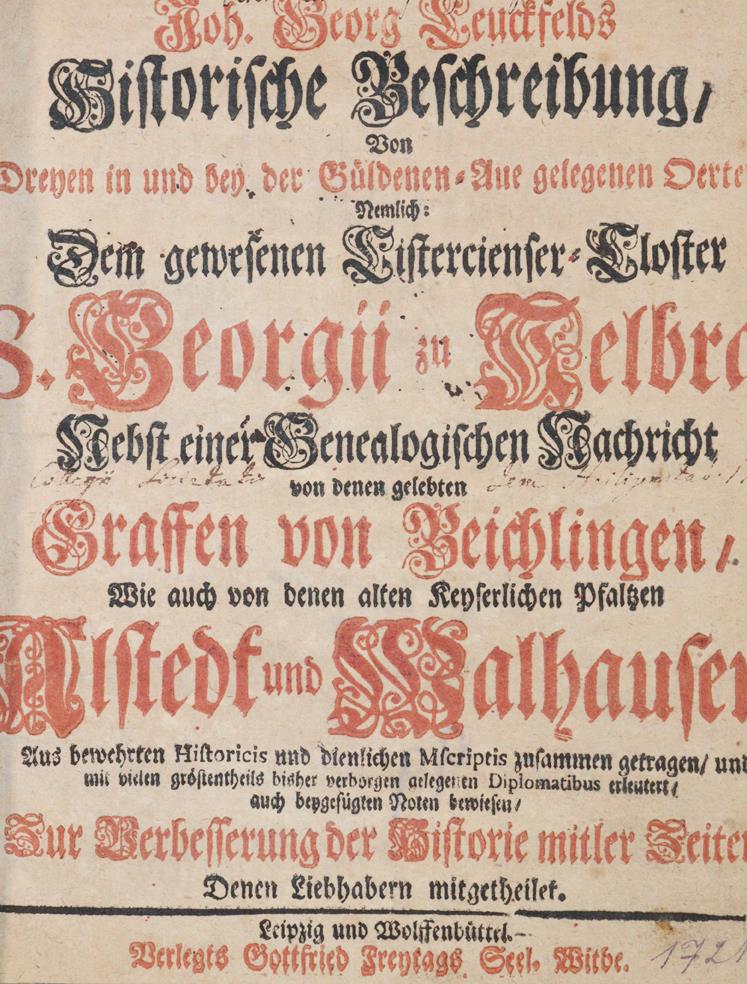 Joh. Georg Leuckfelds
Historische Beschreibung/
Von
Dreyen in und bey der Güldenen-Aue gelegenen Oerte
Nemlich:
Dem gewesenen Cistercienser-Closter
S. Georgii zu Kelbra
Nebst einer Genealogischen Nachricht
von denen gelebten
Graffen von Beichlingen/
Wie auch von denen alten Keyserlichen Pfaltzen
Alstedt und Walhausen
Aus bewehrten Historicis und dienlichen Mscriptis zusammen getragen/ und
mit vielen gröstentheils bisher verborgen gelegenen Diplomatibus erleutert/
auch beygefügten Noten bewiesen/
Zur Verbesserung der Historie mitler Zeiten
Denen Liebhabern mitgetheilet.
Leipzig und Wolffenbüttel.
Verlegts Gottfried Freytags Seel. Witbe.
1721